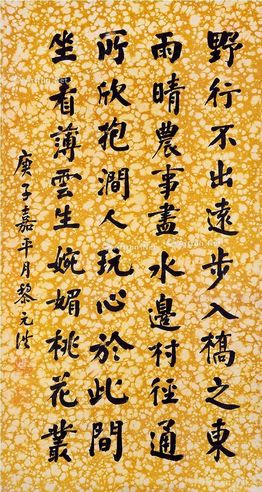 野行不出遠步入橋之東
雨晴農事盡水邊村徑通
所欣抱澗人玩心於此間
坐看薄雲生婉媚桃花叢
庚子嘉平月黎元洪